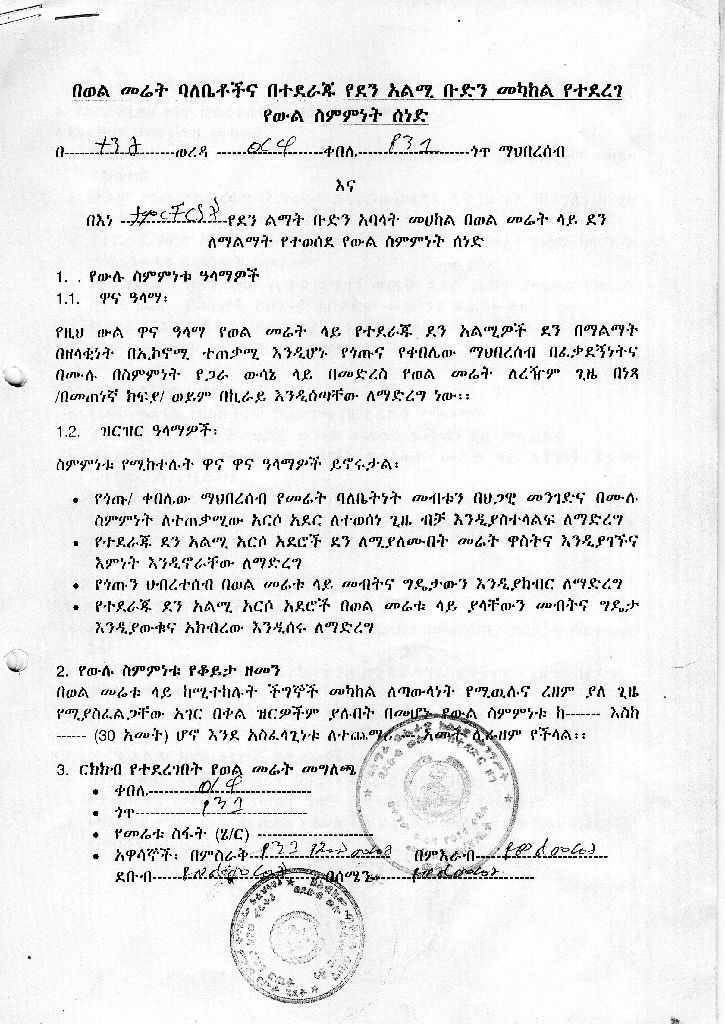 በወል መሬት ባለቤቶችና በተደራጁ የደን አልሚ ቡድን መካከል የተደረገ
የውል ስምምነት ሰነድ
በ ወረዳ ቀበለ ጎጥ ማህበረሰብ
እና
በእነ የደን ልማት ቡድን አባላት መሀከል በወል መሬት ላይ ደን
ለማልማት የተወሰደ የውል ስምምነት ሰነድ
1. . የውሉ ስምምነቱ ዓላማዎች
1.1. ዋና ዓላማ፡
የዚህ ውል ዋና ዓላማ የወል መሬት ላይ የተደራጁ ደን አልሚዎች ደን በማልማት
በዘላቂነት በኢኮኖሚ ተጠቃሚ እንዲሆኑ የጎጡና የቀበሌው ማህበረሰብ በፈቃደኝነትና
በሙሉ በስምምነት የጋራ ውሳኔ ላይ በመድረስ የወል መሬት ለረዥም ጊዜ በነጻ
/በመጠነኛ ክፍያ/ ወይም በኪራይ እንዲሰጣቸው ለማድረግ ነው፡፡
1.2. ዝርዝር ዓላማዎች፡
ስምምነቱ የሚከተሉት ዋና ዋና ዓላማዎች ይኖሩታል፡
• የጎጡ/ ቀበሌው ማህበረሰብ የመሬት ባለቤትነት መብቱን በህጋዊ መንገድና በሙሉ
ስምምነት ለተጠቃሚው አርሶ አደር ለተወሰነ ጊዜ ብቻ እንዲያስተላልፍ ለማድረግ
• የተደራጁ ደን አልሚ አርሶ አደሮች ደን ለሚያለሙበት መሬት ዋስትና እንዲያገኙና
እምነት እንዲኖራቸው ለማድረግ
• የጎጡን ህብረተሰብ በወል መሬቱ ላይ መብትና ግዴታውን እንዲያከብር ለማድረግ
• የተደራጁ ደን አልሚ አርሶ አደሮች በወል መሬቱ ላይ ያላቸውን መብትና ግዴታ
እንዲያውቁና አክብረው እንዲሰሩ ለማድረግ
2. የውሉ ስምምነቱ የቆይታ ዘመን
በወል መሬቱ ላይ ከሚተከሉት ችግኞች መካከል ለጣውላነት የሚዉሉና ረዘም ያለ ጊዜ
የሚያስፈልጋቸው አገር በቀል ዝርዎችም ያሉበት በመሆኑ የውል ስምምነቱ ከ------- እስከ
------ (30 አመት) ሆኖ እንደ አስፈላጊነቱ ለተጨማሪ አመት ሊራዘም የችላል፡፡
3. ርክክብ የተደረገበት የወል መሬት መግለጫ
• ቀበለ
• ጎጥ
• የመሬቱ ስፋት (ሄ/ር) --------------------
• አዋሳኞች፡ በምስራቅ በምእራብ
ደቡብ በሰሜን